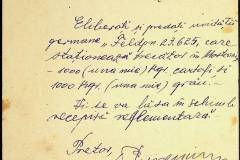 Eliberați și predați unității
germane „Feldpn. 27.625, care
staționează
1000 (una mie) kgr. cartofi și
1000 kgr. (una mie) grâu.-
Vi se va lăsa în schimb
recepis reglementară"
Pretor,